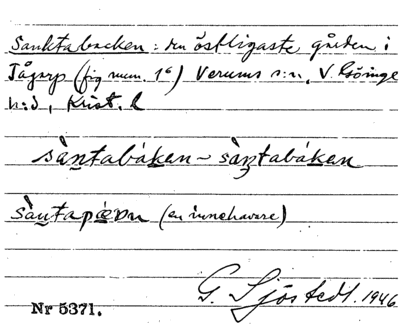 Sanktabacken: den östligaste gården i
Tågarp (fig num. 1⁶) Verums s:n, V. Göinge
h:d, Krist. l
sàntabáken – sàntabáken
sàntapævn (en innehavare)
G. Sjöstedt. 1946
Nr 5371.